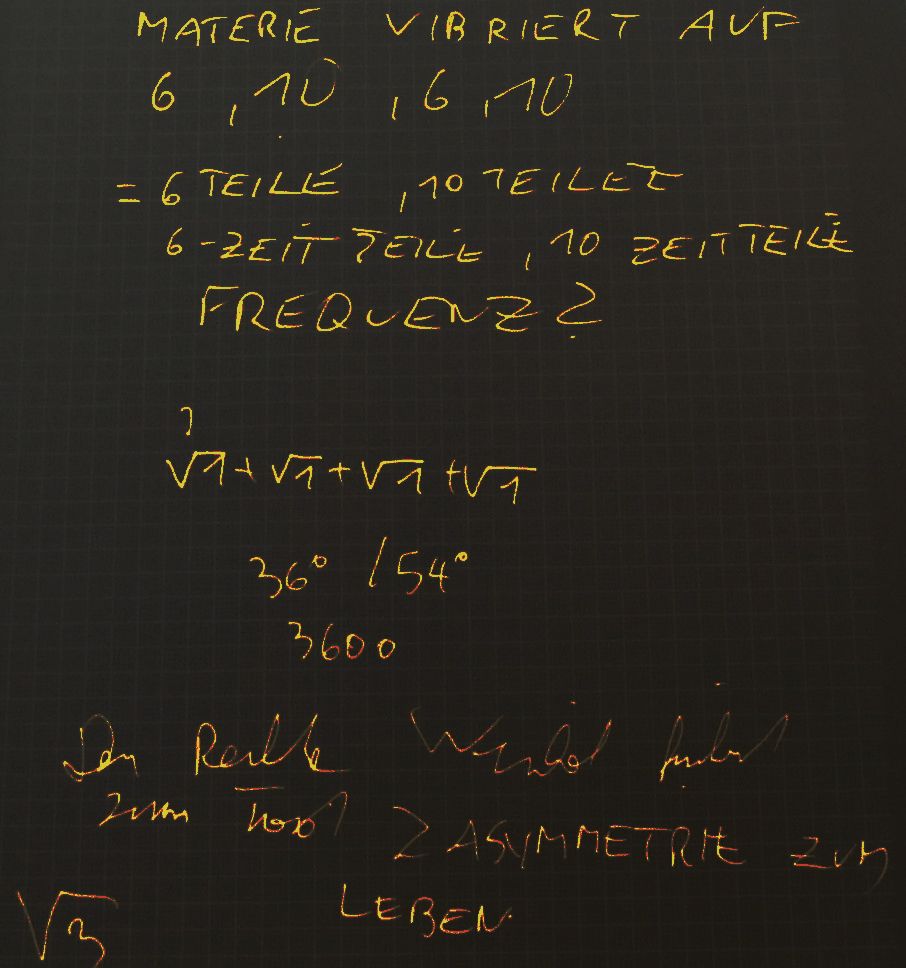 MATERIE VIBRIERT AUF
6 , 10 , 6 , 10
= 6 TEILE , 10 TEILE
6-ZEIT TEILE , 10 ZEITTEILE
FREQUENZ?
?
√1 + √1 + √1 + √1
36° / 54°
3600
Der Rechte Winkel führt
zum Tod ? ASYMMETRIE ZUM
LEBEN.
√3